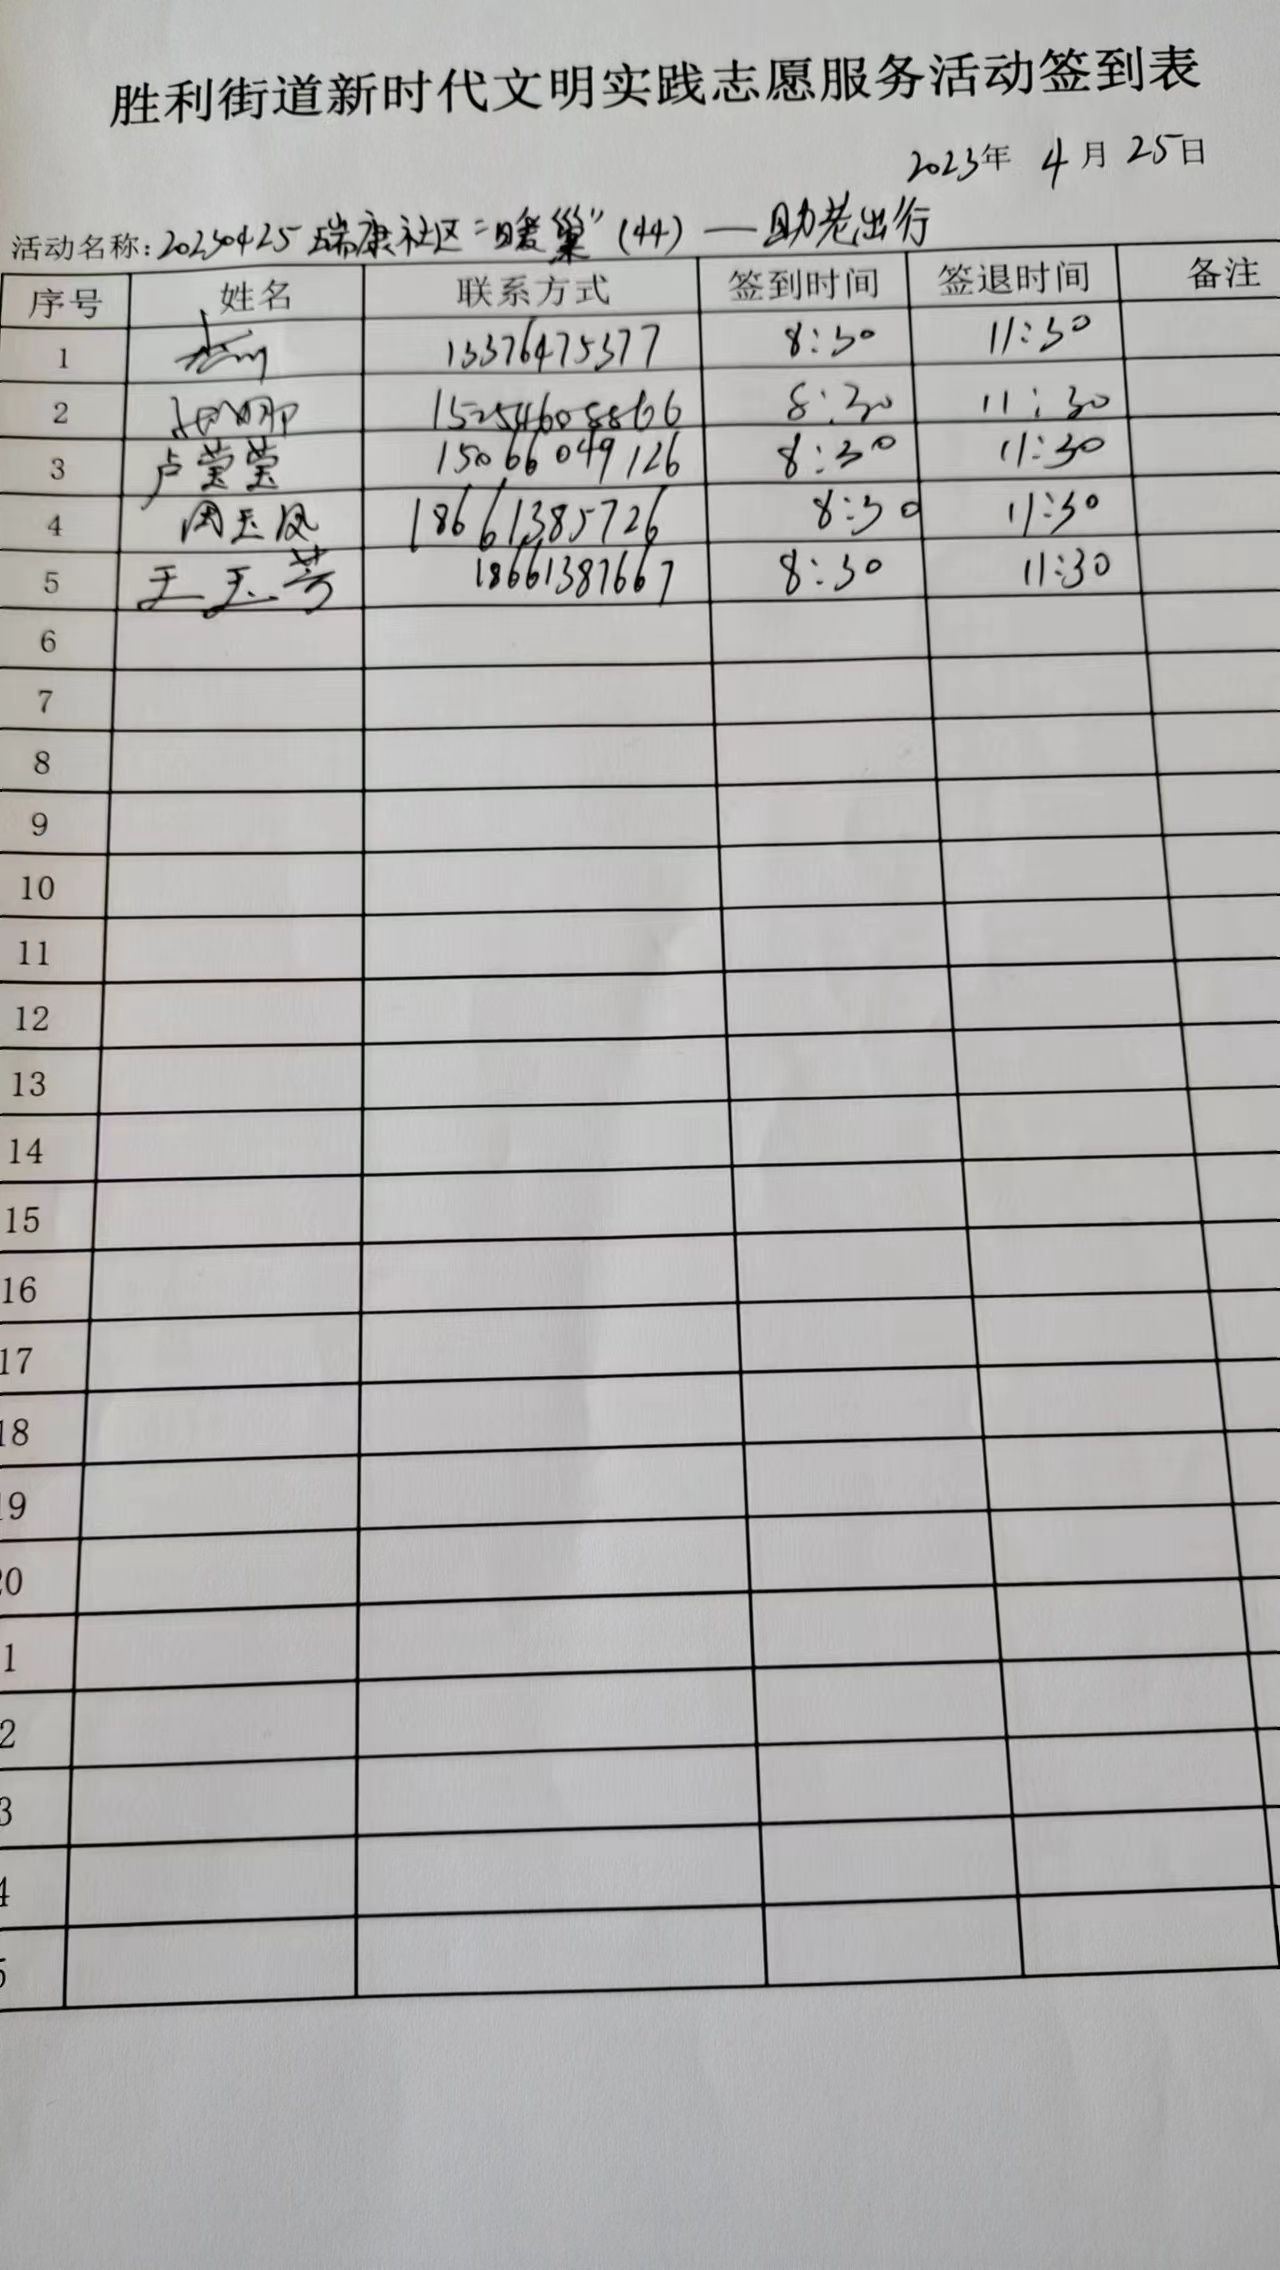 胜利街道新时代文明实践志愿服务活动签到表
2023年 4月 25日
活动名称：20230425瑞康社区“暖巢”(44)——助老出行
序号 姓名 联系方式 签到时间 签退时间 备注
1 13376475377 8:30 11:30
2 15254608866 8:30 11:30
3 卢莹莹 15066049126 8:30 11:30
4 周玉凤 18661385726 8:30 11:30
5 王玉芳 18661387667 8:30 11:30
6
7
8
9
10
11
12
13
14
15
16
17
18
19
20
1
2
3
4
5